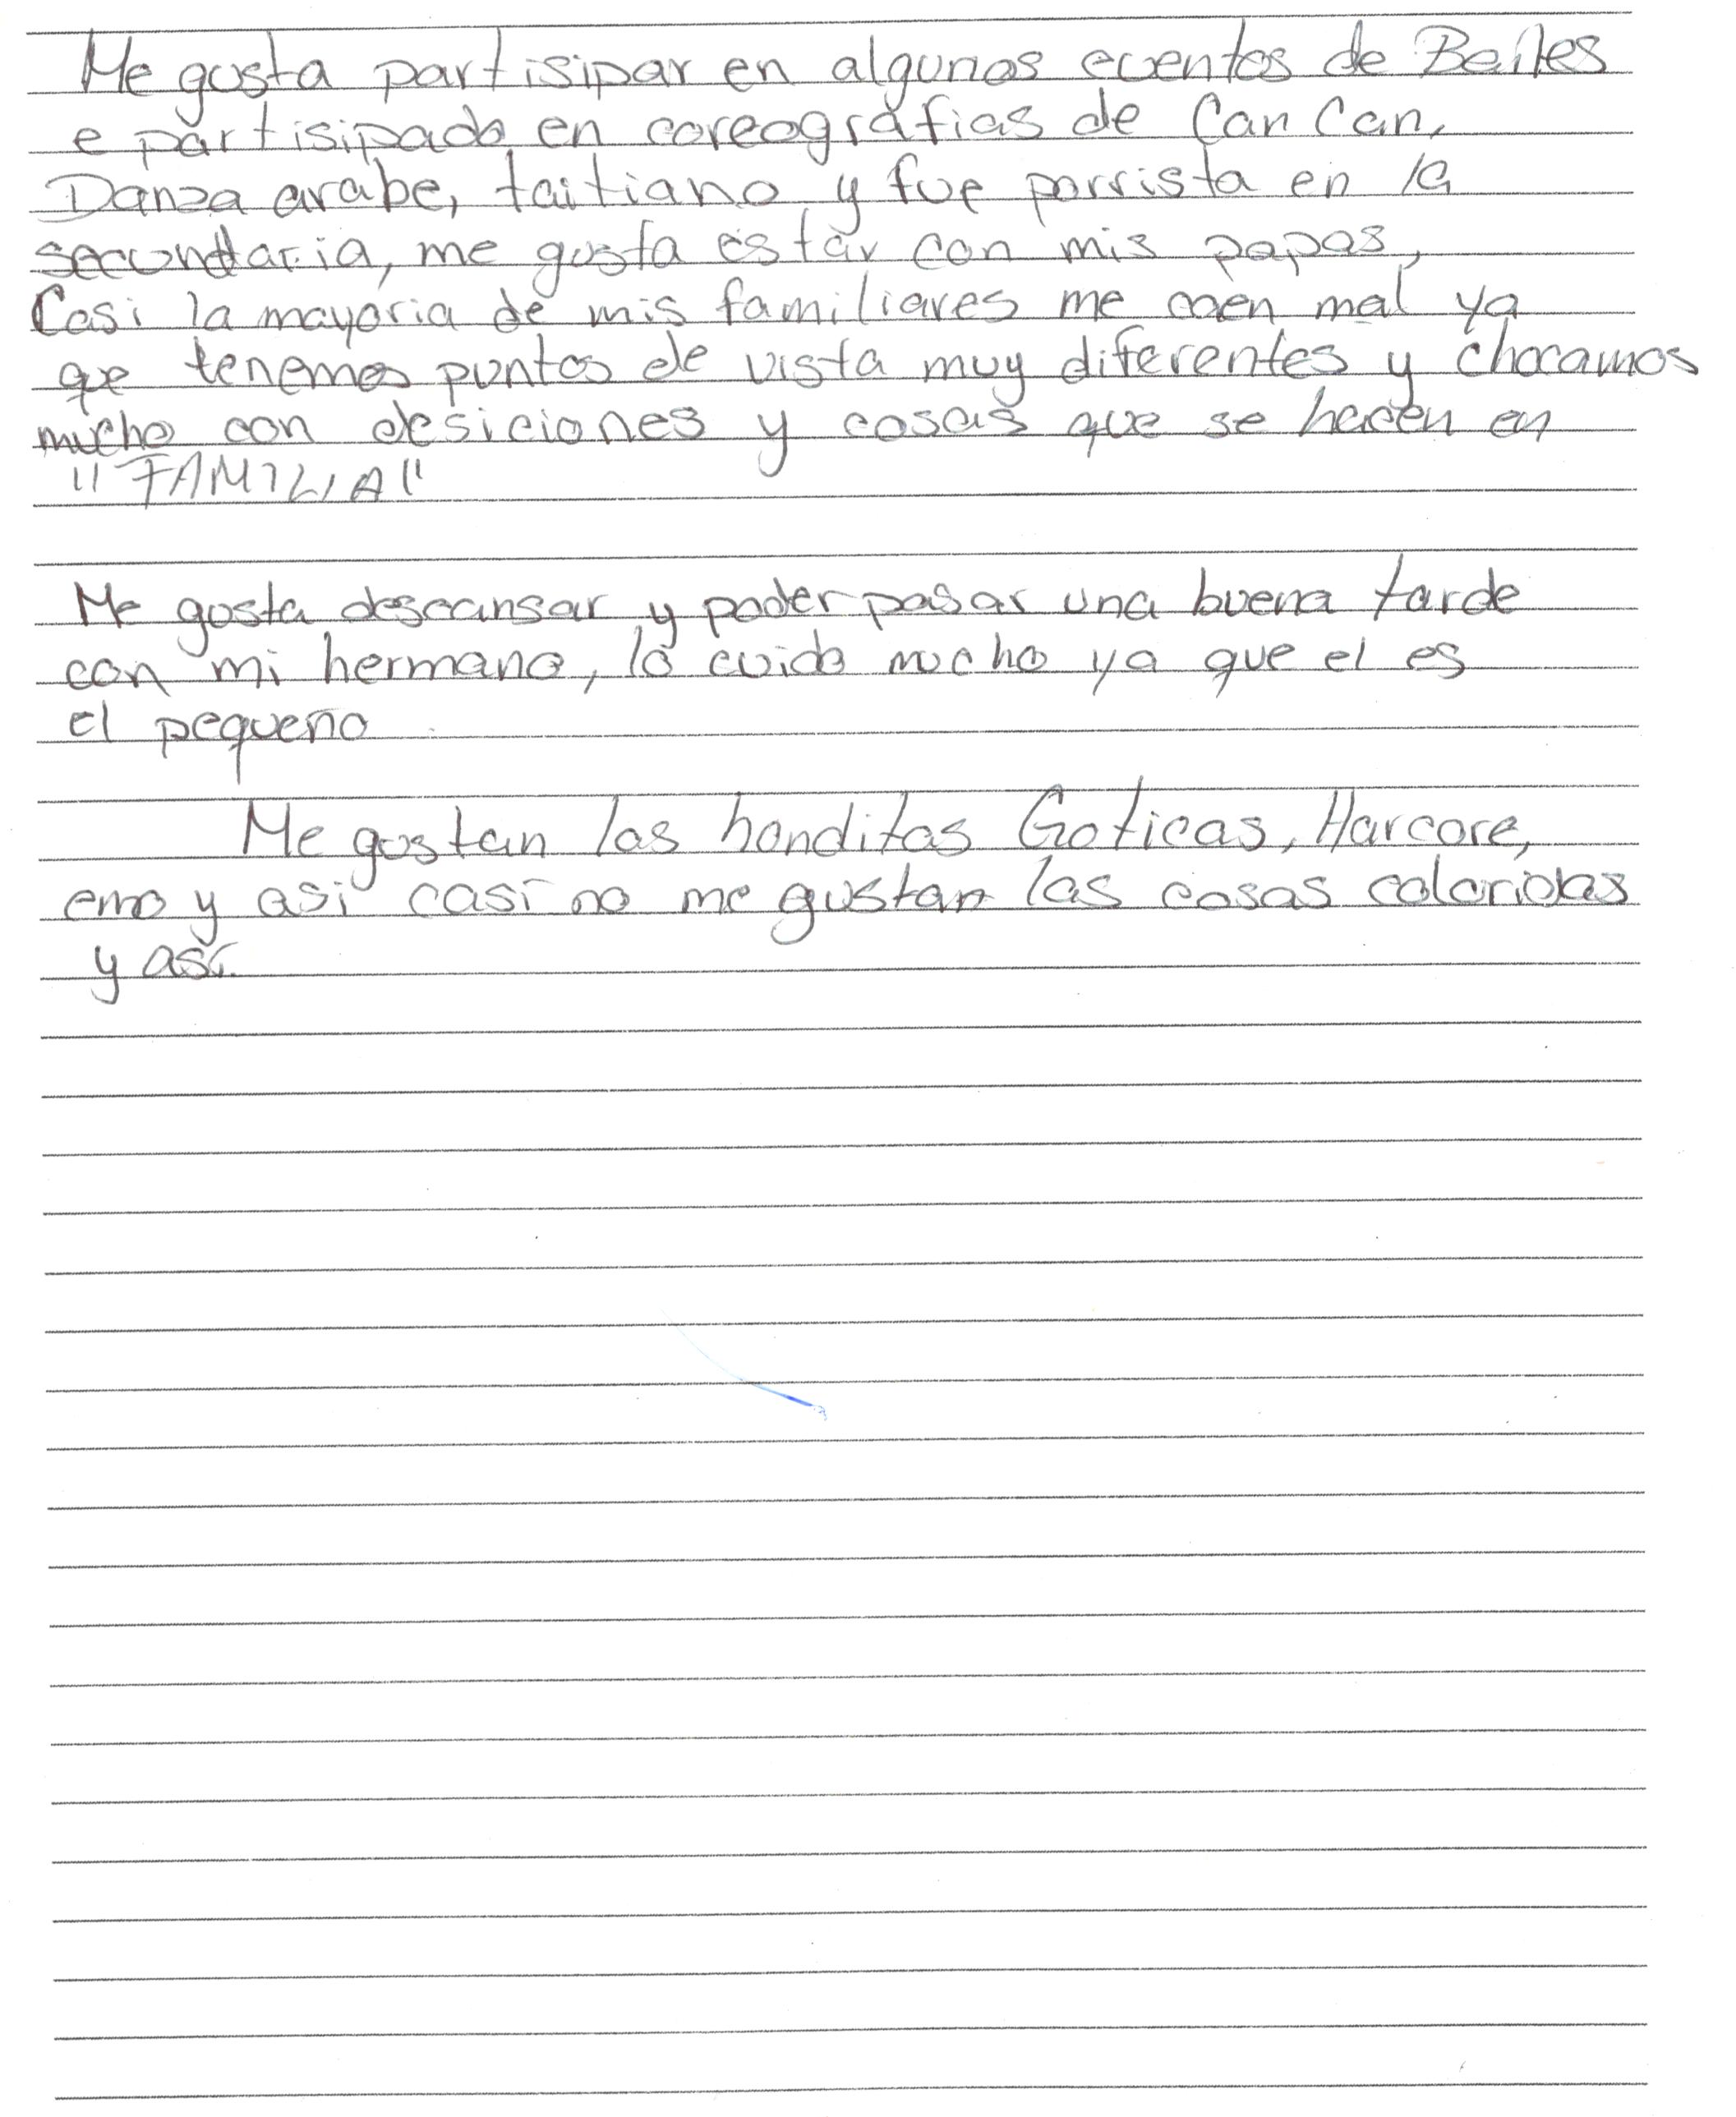 Me gusta partisipar en algunos eventos de Bailes
e partisipado en coreografias de Can Can,
Danza arabe, taitiano y fue porrista en la
secundaria, me gusta estar con mis papas,
Casi la mayoria de mis familiares me caen mal ya
que tenemos puntos de vista muy diferentes y chocamos
mucho con desiciones y cosas que se hacen en
"FAMILIA"
Me gusta descansar y poder pasar una buena tarde
con mi hermano, lo cuido mucho ya que el es
el pequeño
Me gustan las banditas Goticas, Harcore,
emo y asi casi no me gustan las cosas coloridas
y asi.